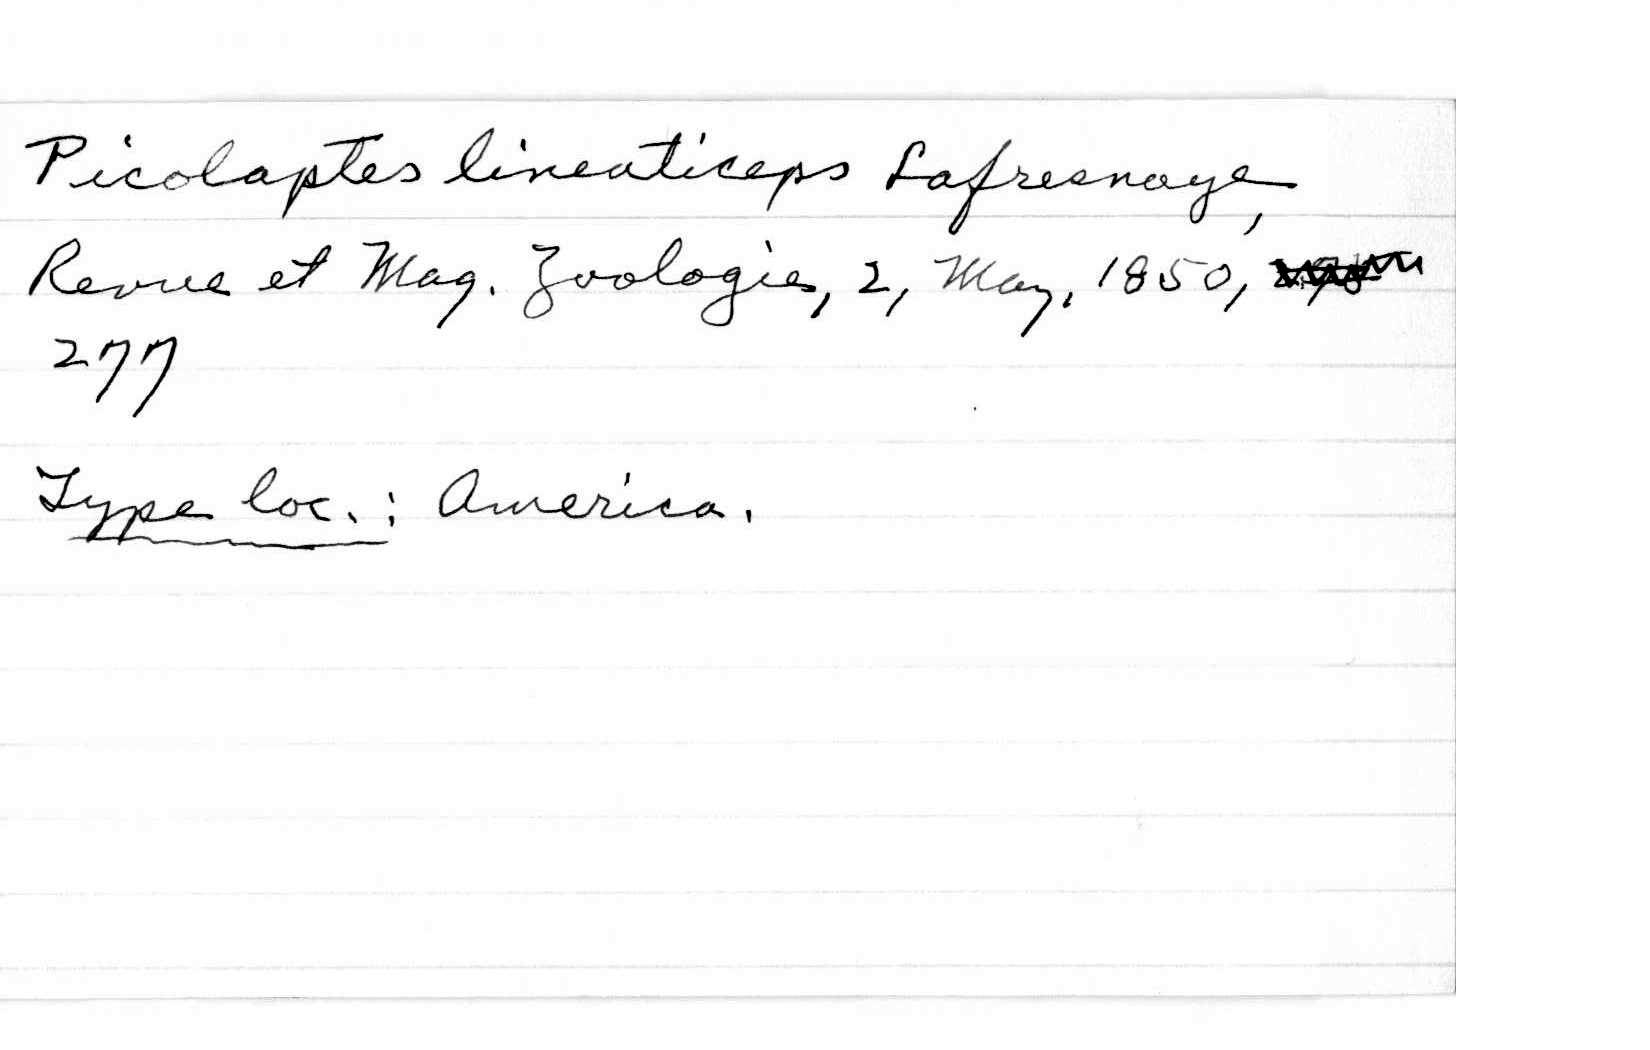 Picolaptes lineaticeps Lafresnaye,
Revue et Mag. Zoologie, 2, May, 1850,
277
Type loc.: America.